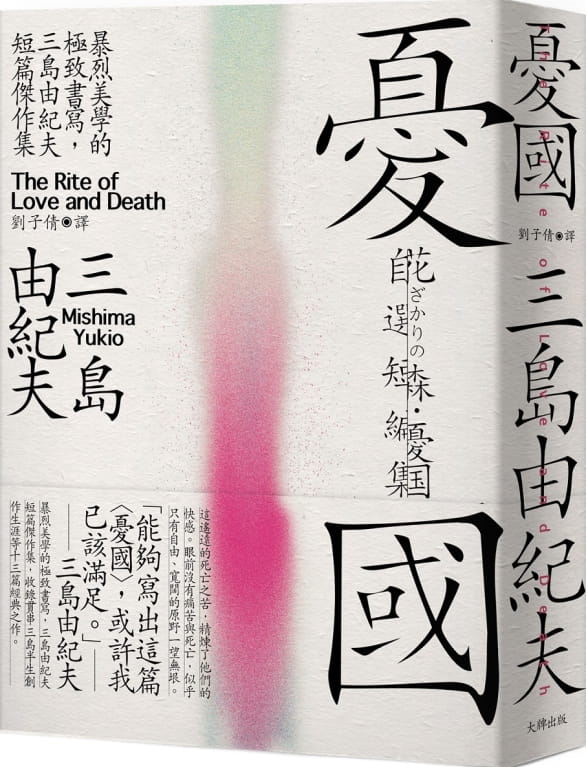 憂國
花ざかりの森・憂国
自選短編集
暴烈美學的
極致書寫，
三島由紀夫
短篇傑作集
The Rite of
Love and Death
劉子倩◉譯
三島
由紀夫
Mishima
Yukio
這遙遠的死亡之苦，精煉了他們的
快感。眼前沒有痛苦與死亡，似乎
只有自由、寬闊的原野一望無垠。
「能夠寫出這篇
〈憂國〉，或許我
已該滿足。」——
——三島由紀夫
暴烈美學的極致書寫，三島由紀夫
短篇傑作集，收錄貫串三島半生創
作生涯等十三篇經典之作。
憂國
劉子倩◉譯
三島由紀夫
The Rite of Love and Death
大牌出版